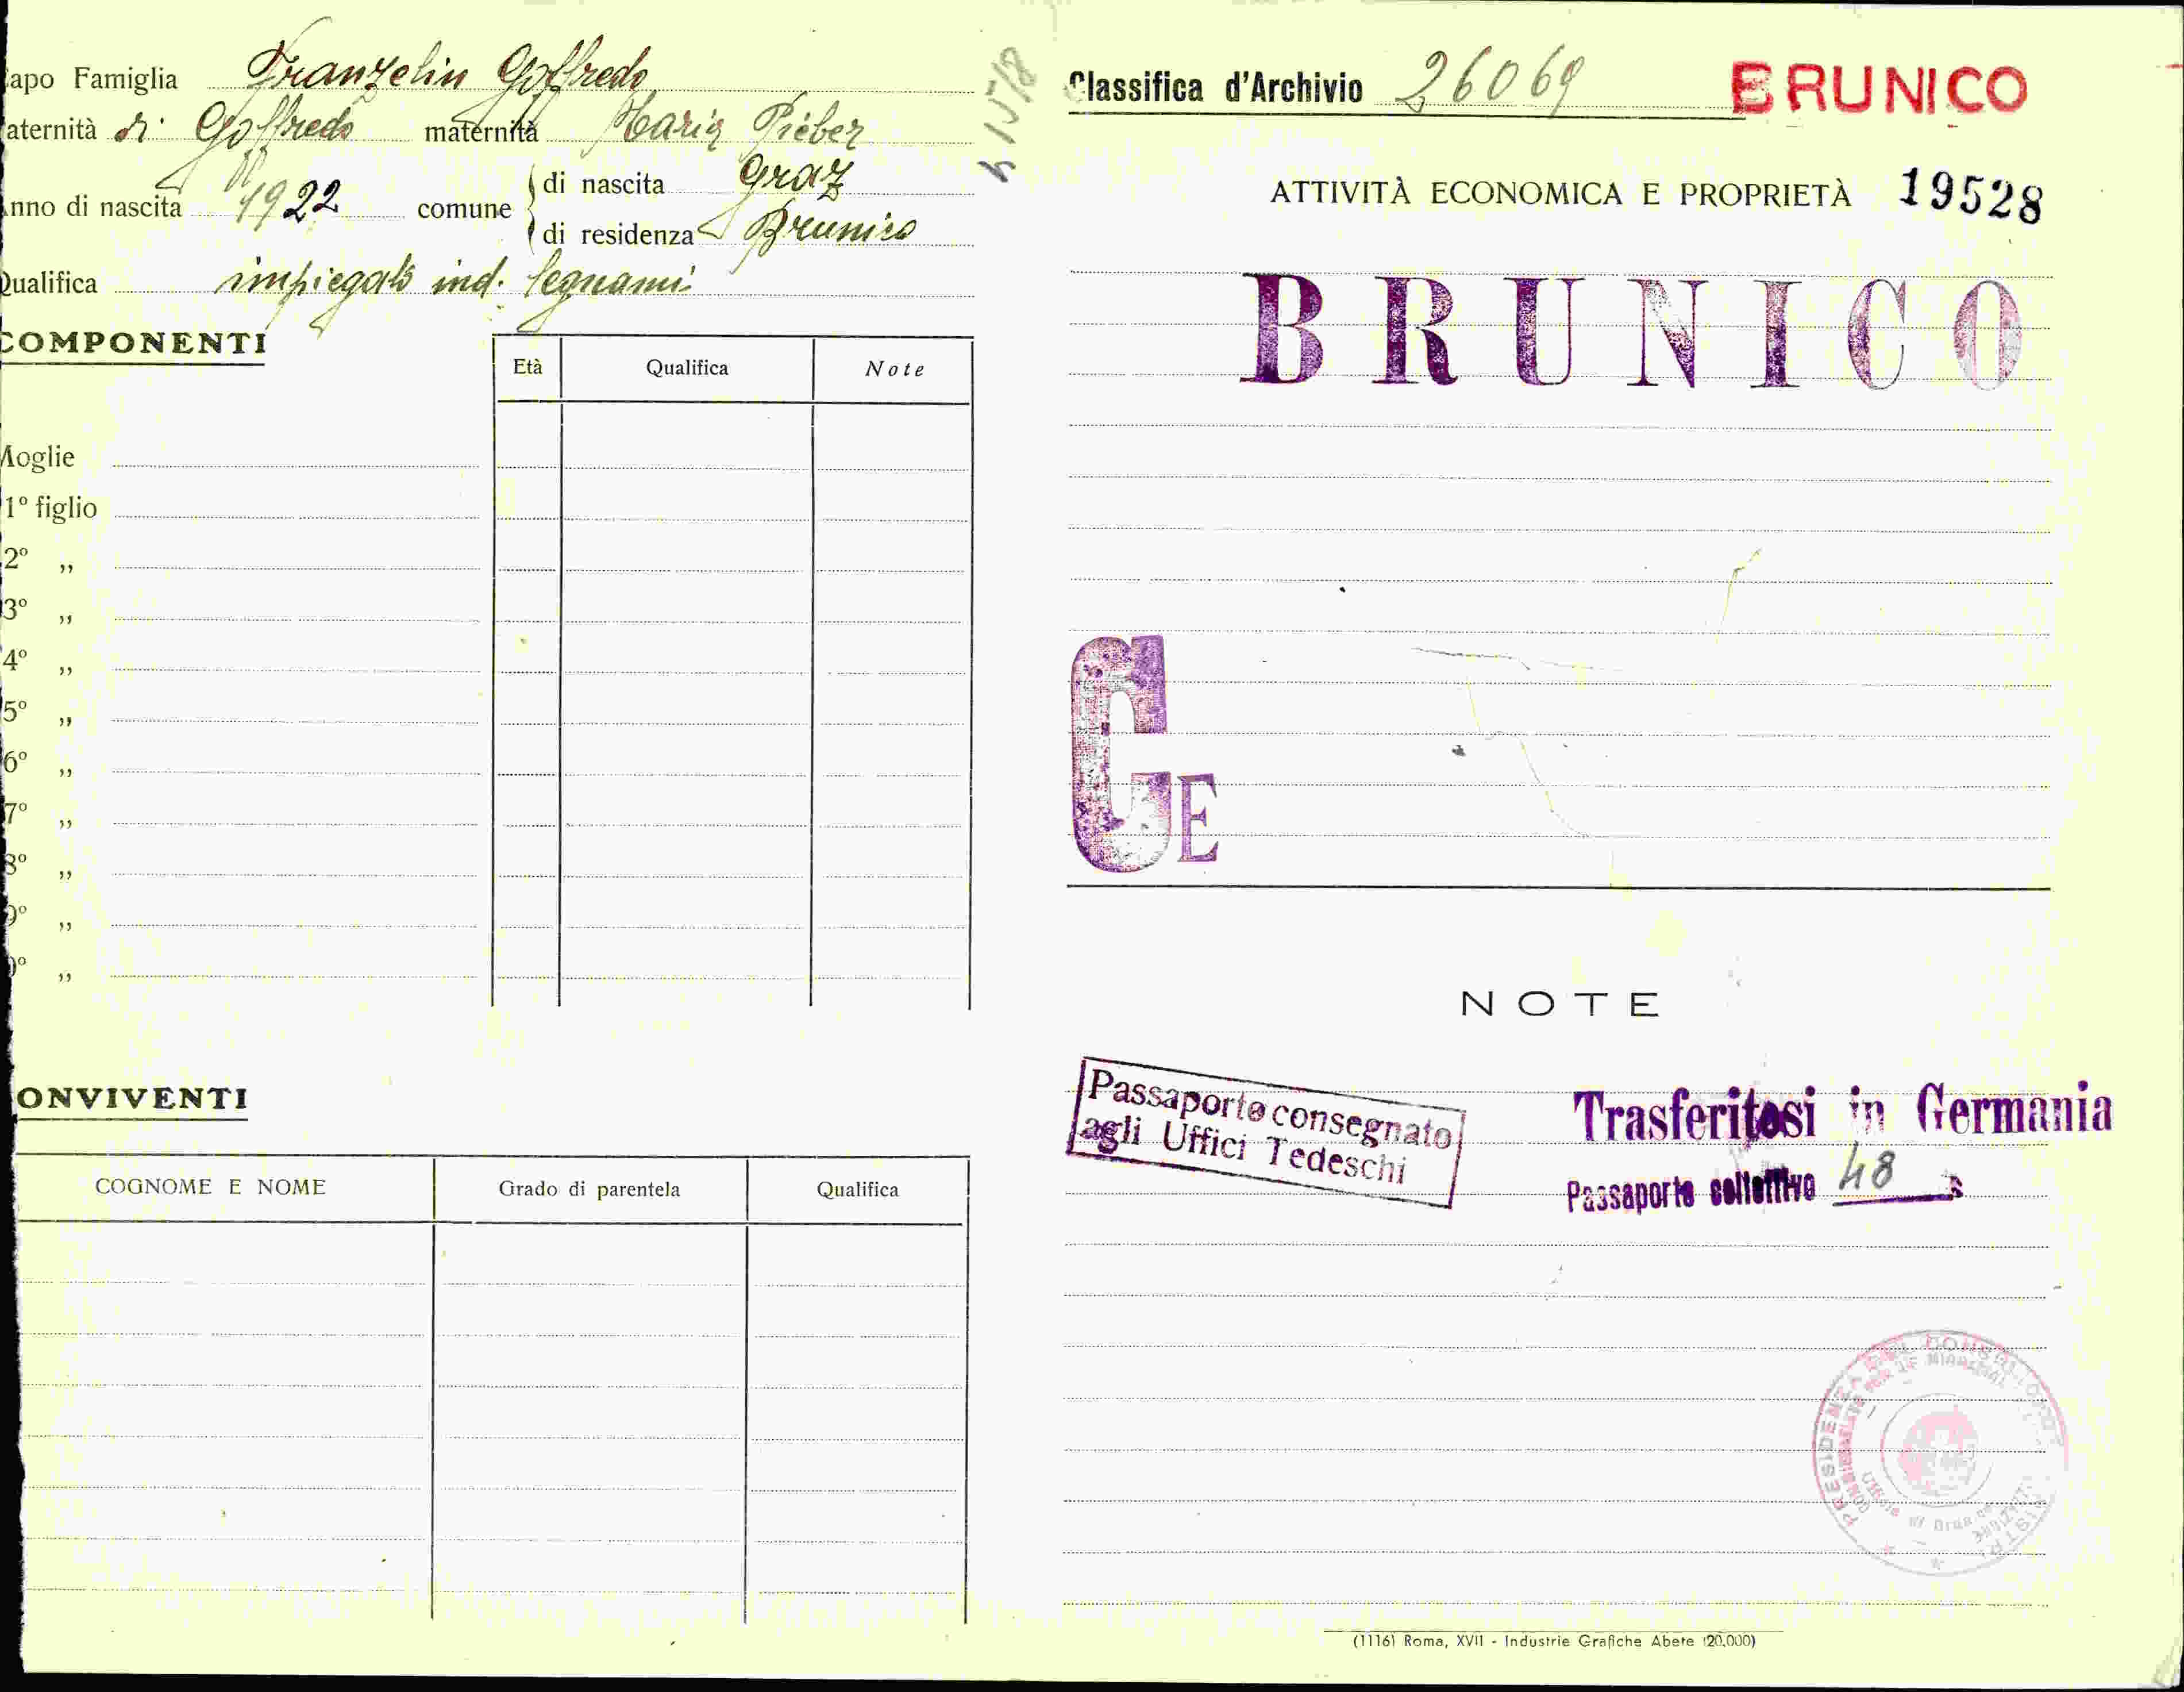 apo Famiglia Franzelin Goffredo
aternità di Goffredo maternità Maria Pieber
nno di nascita 1922 comune di nascita Graz
di residenza Brunico
Qualifica impiegato ind. legnami
COMPONENTI
Età Qualifica Note
Moglie
1° figlio
2° ,,
3° ,,
4° ,,
5° ,,
6° ,,
7° ,,
8° ,,
9° ,,
0° ,,
ONVIVENTI
COGNOME E NOME Grado di parentela Qualifica
Classifica d'Archivio 26069 BRUNICO
ATTIVITÀ ECONOMICA E PROPRIETÀ 19528
BRUNICO
GE
NOTE
Passaporto consegnato
agli Uffici Tedeschi
Trasferitosi in Germania
Passaporto collettivo 48
(1116) Roma, XVII - Industrie Grafiche Abete (20.000)